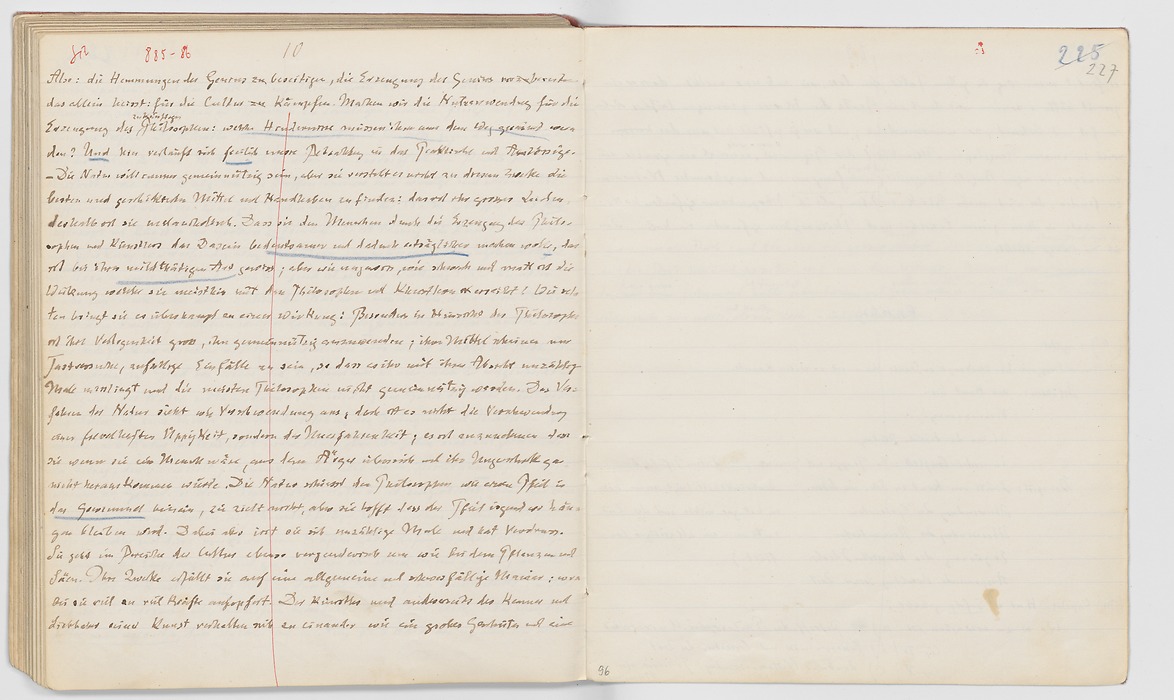 885-86 10 225
227
Also: die Hemmungen des Genius zu beseitigen, die Erzeugung des Genius vorzubereiten
das allein heisst: für die Cultur zu kämpfen. Machen wir die Nutzanwendung für die
zukünftigen
Erzeugung des Philosophen: welche Hindernisse müssen ihm aus dem Weg geräumt wer-
den? Und hier verläuft sich freilich unsere Betrachtung in das Praktische und Anstössige.
– Die Natur will immer gemeinnützig sein, aber sie versteht es nicht zu diesem Zwecke die
besten und geschicktesten Mittel und Handhaben zu finden: das ist ihr grosses Leiden,
deshalb ist sie melancholisch. Dass sie den Menschen durch die Erzeugung des Philo-
sophen und Künstlers das Dasein bedeutsamer und dadurch erträglicher machen wolle, das
ist bei ihrer mildthätigen Art gewiss; aber wie ungewiss, wie schwach und matt ist die
Wirkung welche sie meisthin mit den Philosophen und Künstlern erreicht! Wie sel-
ten bringt sie es überhaupt zu einer Wirkung! Besonders in Hinsicht des Philosophen
ist ihre Verlegenheit gross, ihn gemeinnützig anzuwenden; ihre Mittel scheinen nur
Tastversuche, zufällige Einfälle zu sein, so dass es ihr mit ihrer Absicht unzählige
Male misslingt und die meisten Philosophen nicht gemeinnützig werden. Das Ver-
fahren der Natur sieht wie Verschwendung aus; doch ist es nicht die Verschwendung
einer frevelhaften Üppigkeit, sondern der Unerfahrenheit; es ist anzunehmen dass
sie wenn sie ein Mensch wäre, aus dem Ärger über sich und ihr Ungeschick gar
nicht herauskommen würde. Die Natur schiesst den Philosophen wie einen Pfeil in
die Menschen hinein, sie zielt nicht, aber sie hofft dass der Pfeil irgendwo hän-
gen bleiben wird. Dabei aber irrt sie sich unzählige Male und hat Verdruss.
Sie geht im Bereiche der Cultur ebenso vergeuderisch um wie bei dem Pflanzen und
Säen. Ihre Zwecke erfüllt sie auf eine allgemeine und schwerfällige Manier; wobei
sie viel zu viel Kräfte aufopfert. Der Künstler und andererseits die Kenner und
Liebhaber einer Kunst verhalten sich zu einander wie ein grobes Geschütz und eine
96